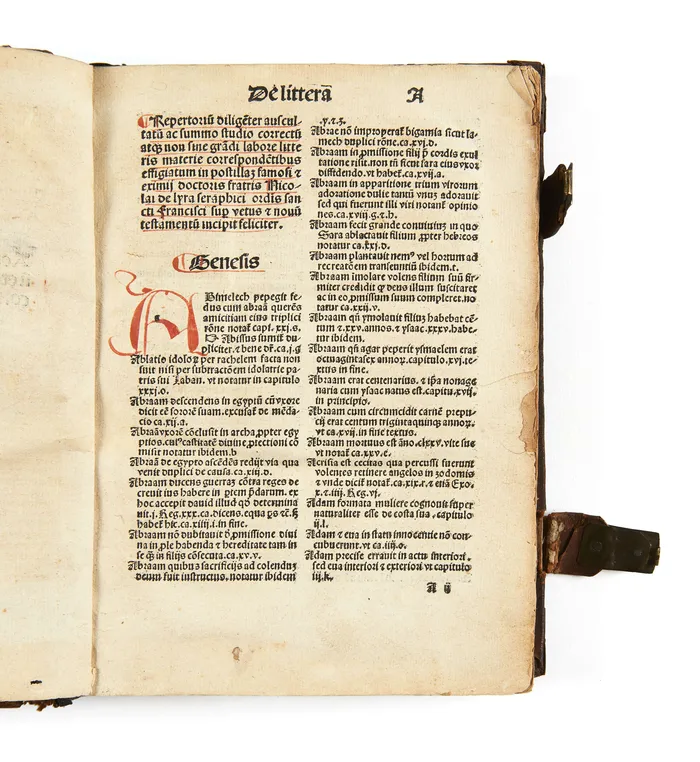 De litterā A
¶Repertoriū diligēter auscul-
tatū ac summo studio correctū
atqꝫ non sine grādi labore litte
ris materie correspondētibus
effigiatum in postillas famosi ⁊
eximij doctoris fratris Nico-
lai de lyra seraphici ordīs san
cti Francisci sup vetus ⁊ nouū
testamentū incipit feliciter.
¶Genesis
ABimelech pepegit fe-
dus cum abraā querēs
amicitiam eius triplici
rōne notat̄ capi. xxj.s.
Abissus sumit̄ du
pliciter. ⁊ bene dr̄.ca.j.g
Ablatio idoloꝝ per rachelem facta non
fuit nisi per subtractōem idolatrie pa-
tris sui Laban. vt notatur in capitulo
xxxj.o.
Abraam descendens in egyptū cū vxore
dicit eē sororē suam. excusat̄ de mēda-
cio ca.xij.a.
Abraā vxorē cōclusit in archa, ꝓpter egy
ptios. castitatē divine ꝓtectioni cō
misit notatur ibidem.b
Abraā de egypto ascēdēs redijt via qua
venit duplici de causa.ca.xiij.d.
Abraam ducens guerraʒ cōtra reges de
creuit ius habere in ꝑtem p̄darum. ex
hoc accepit dauid illud qd̄ determina
uit.j. Reg.xxx.ca.dicens. equa
habet̄ hic.ca.xiiij.i. in fine.
Abraam nō dubitauit d̄ ꝓmissione diui
na in ꝓle habenda ⁊ hereditate tam in
se qͣ in filijs cōsecuta.ca.xv.v.
Abraam quibus sacrificijs ad colendus
deum fuit instructus. notatur ibidem
.y.z.
Abrae nō improperat̄ bigamia sicut la-
mech duplici rōne.ca.xvj.d.
Abraam in ꝓmissione filij ꝑ cordis exul
tatione risit. non tn̄ sicut sara eius vxor
diffidendo. vt habet̄.ca.xvij.a.
Abraam in apparitione trium virorum
adoratione dulie tantū vnuʒ adorauit
sed qui fuerunt illi viri notant̄ opinio
nes.ca.xviij.g.⁊ h.
Abraam fecit grande conuiuiuʒ in quo
Sara ablactauit filium ꝓpter hebreos
notatur ca.xxj.d.
Abraam plantauit nemꝰ vel hortum ad
recreatōem transeuntiū ibidem.t.
Abraam imolare volens filium suū fir-
miter credidit ꝙ deus illum suscitaret
ac in eo ꝓmissum suum compleret. no
tatur ca.xxij.v.
Abraam qn̄ ymolauit filiuʒ habebat cē-
tum ⁊ .xxv. annos. ⁊ ysaac .xxxv. habe-
tur ibidem.
Abraam qn̄ agar peperit ysmaelem erat
octuagintasex annoꝝ. capitulo .xvj. te-
xtus in fine.
Abraam erat centenarius. ⁊ ip̄a nonage
naria cum ysaac natus est. capitu.xvij.
in principio.
Abraam cum circumcidit carnē prepu-
cij erat centum trigintaquinqꝫ annoꝝ.
vt ca.xvij. in fine textus.
Abraam mortuus est āno.clxxv. vite sue
vt notat̄ ca.xxv.c.
Acrisia est cecitas qua percussi fuerunt
volentes retinere angelos in zodomis
⁊ vnde dicit̄ notat̄.ca.xix.r. ⁊ etiā Exo.
x.⁊ .iiij. Reg.vj.
Adam formata muliere cognouit super
naturaliter esse de costa sua. capitulo
ij.l.
Adam ⁊ eua in statu innocentie nō con-
cubuerunt. vt ca.iiij.a.
Adam precise errauit in actu interiori.
sed eua interiori ⁊ exteriori vt capitulo
iij.k.
A ij